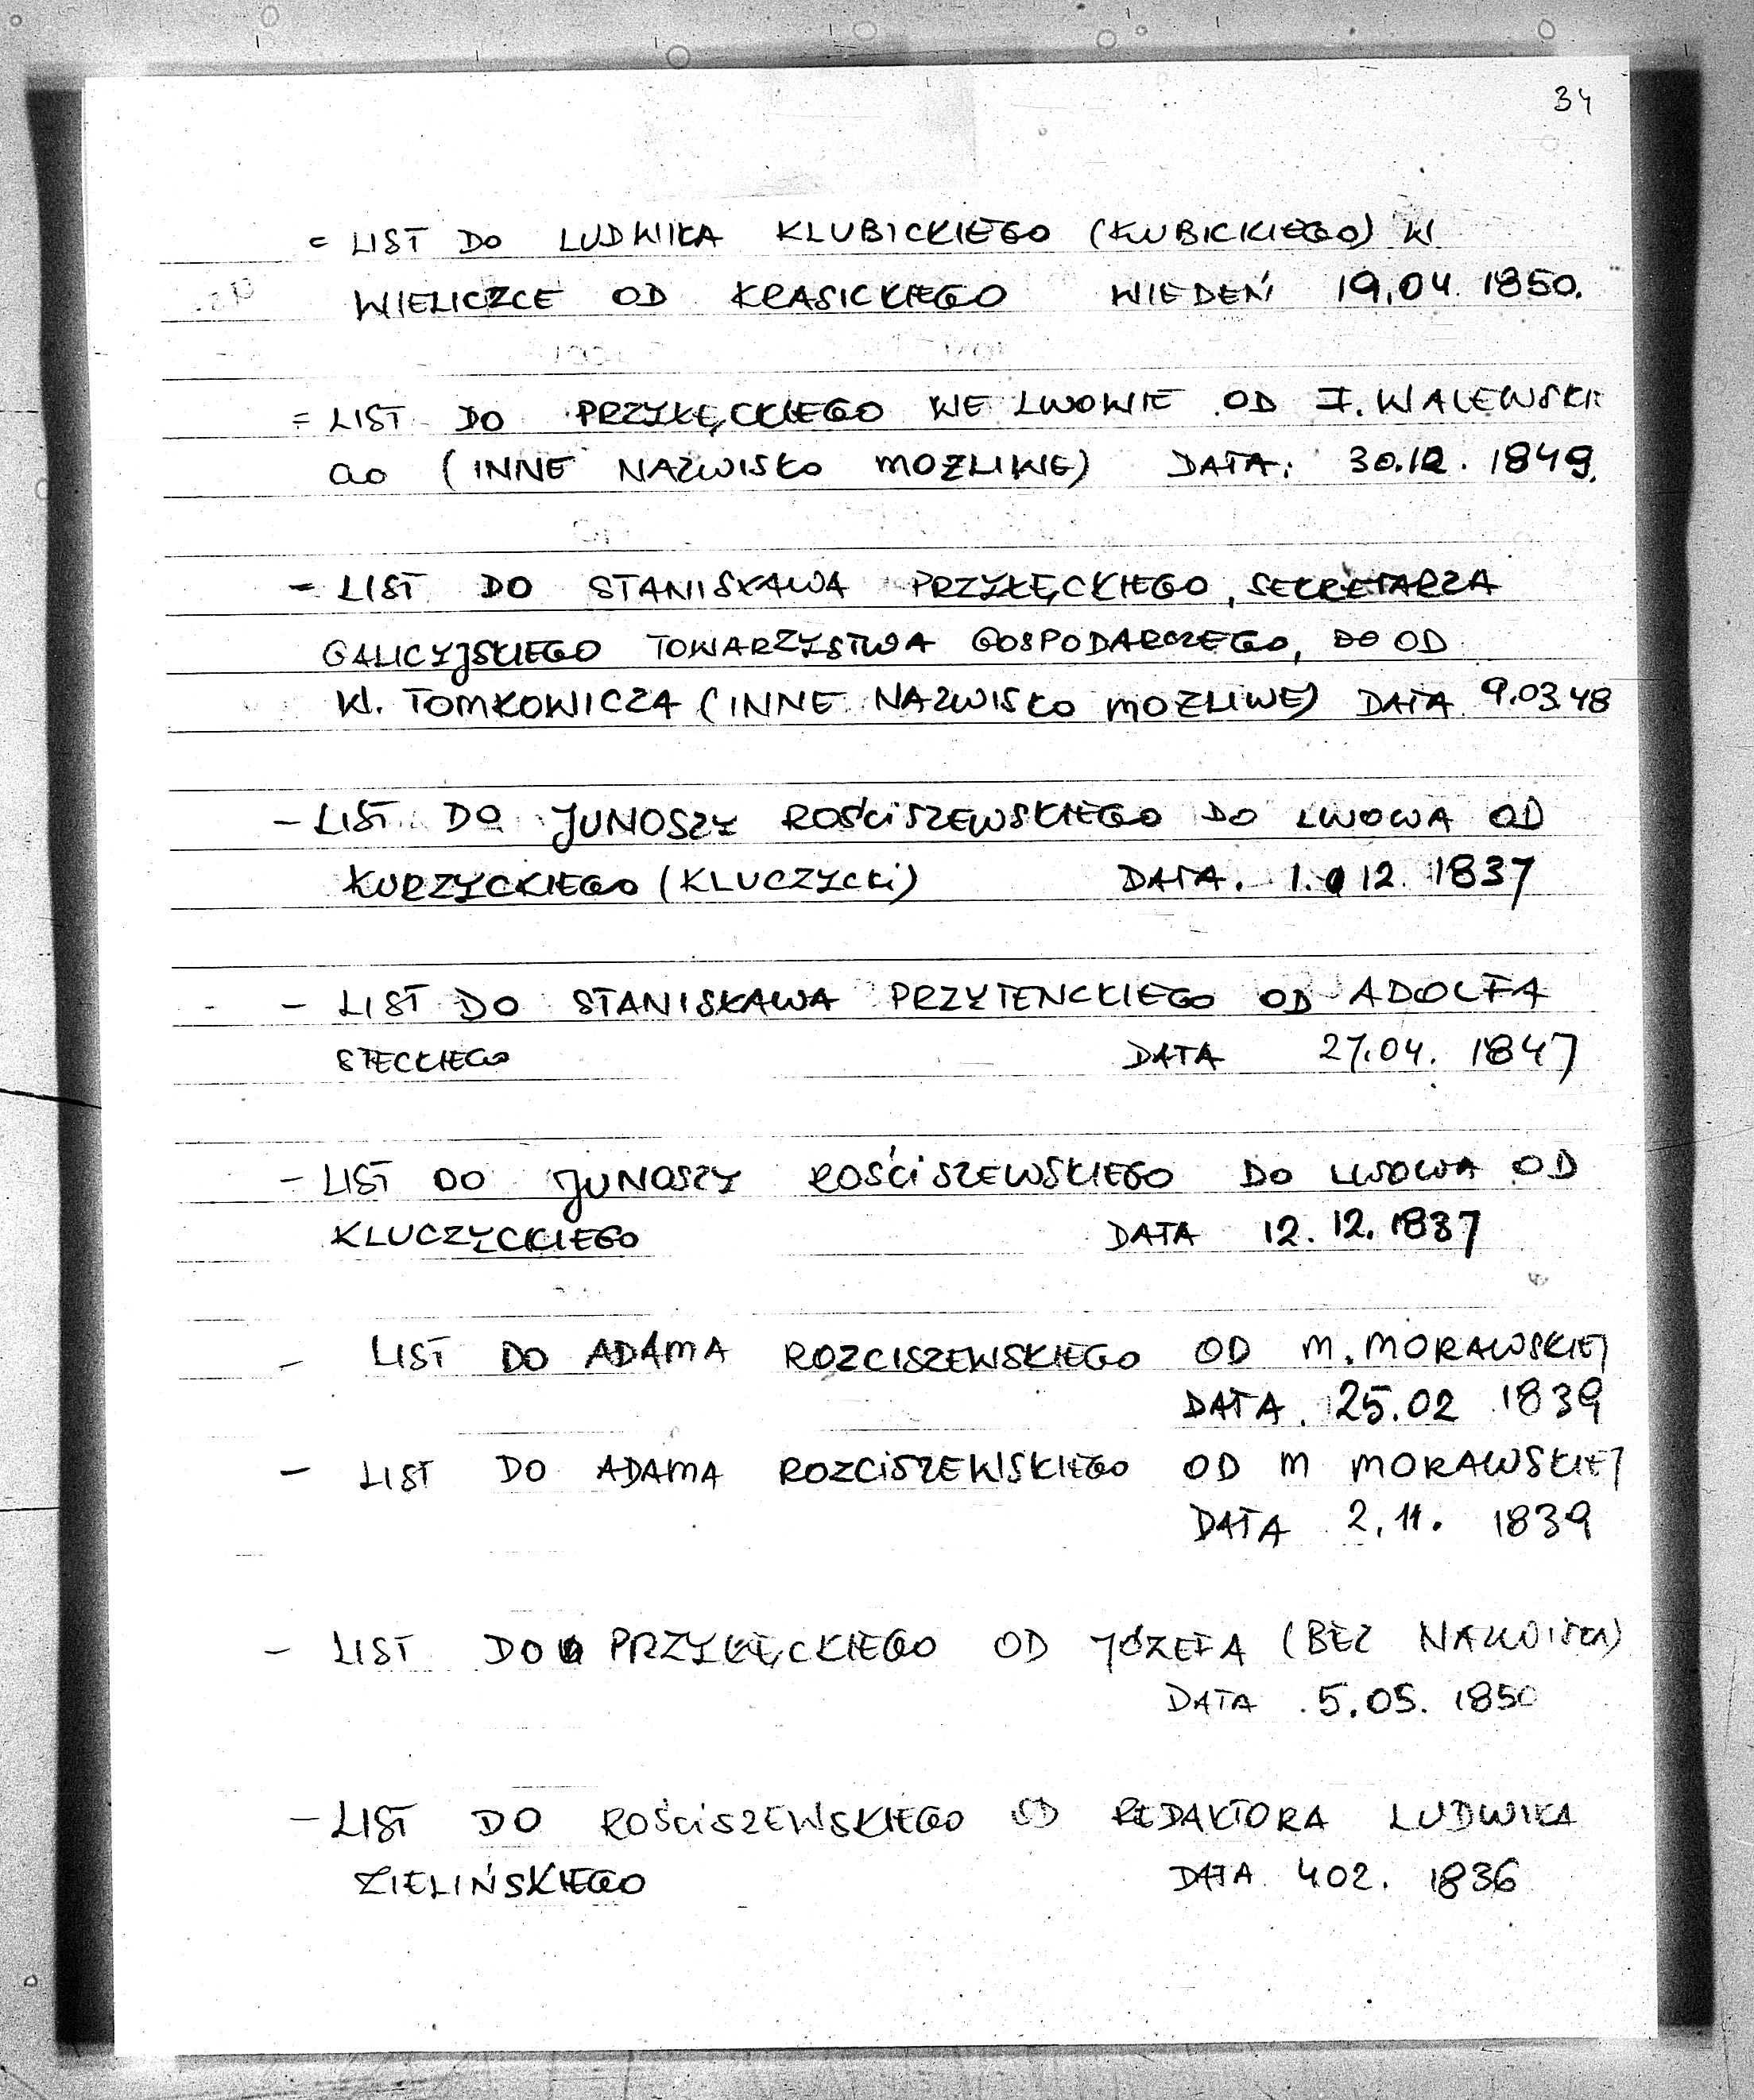 34
= LIST DO LUDWIKA KLUBICKIEGO (KUBICKIEGO) W
WIELICZCE OD KRASICKIEGO WIEDEŃ 19.04. 1850.
= LIST DO PRZYŁĘCKIEGO WE LWOWIE OD I. WALEWSKIE
GO (INNE NAZWISKO MOŻLIWE) DATA: 30.12. 1849.
- LIST DO STANISŁAWA PRZYŁĘCKIEGO, SEKRETARZA
GALICYJSKIEGO TOWARZYSTWA GOSPODARCZEGO, DO OD
W. TOMKOWICZA (INNE NAZWISKO MOŻLIWE) DATA 9.03.48
- LIST DO JUNOSZY ROŚCISZEWSKIEGO DO LWOWA OD
KURZYCKIEGO (KLUCZYCKI) DATA. 1.12. 1837
- LIST DO STANISŁAWA PRZYTENCKIEGO OD ADOLFA
STECKIEGO DATA 27.04. 1847
- LIST DO JUNOSZY ROŚCISZEWSKIEGO DO LWOWA OD
KLUCZYCKIEGO DATA 12.12.1837
- LIST DO ADAMA ROZCISZEWSKIEGO OD M. MORAWSKIEJ
DATA. 25.02 1839
- LIST DO ADAMA ROZCISZEWSKIEGO OD M MORAWSKIEJ
DATA 2.11. 1839
- LIST DO PRZYŁĘCKIEGO OD JÓZEFA (BEZ NAZWISKA)
DATA 5.05. 1850
- LIST DO ROŚCISZEWSKIEGO OD REDAKTORA LUDWIKA
ZIELIŃSKIEGO DATA 4.02. 1836